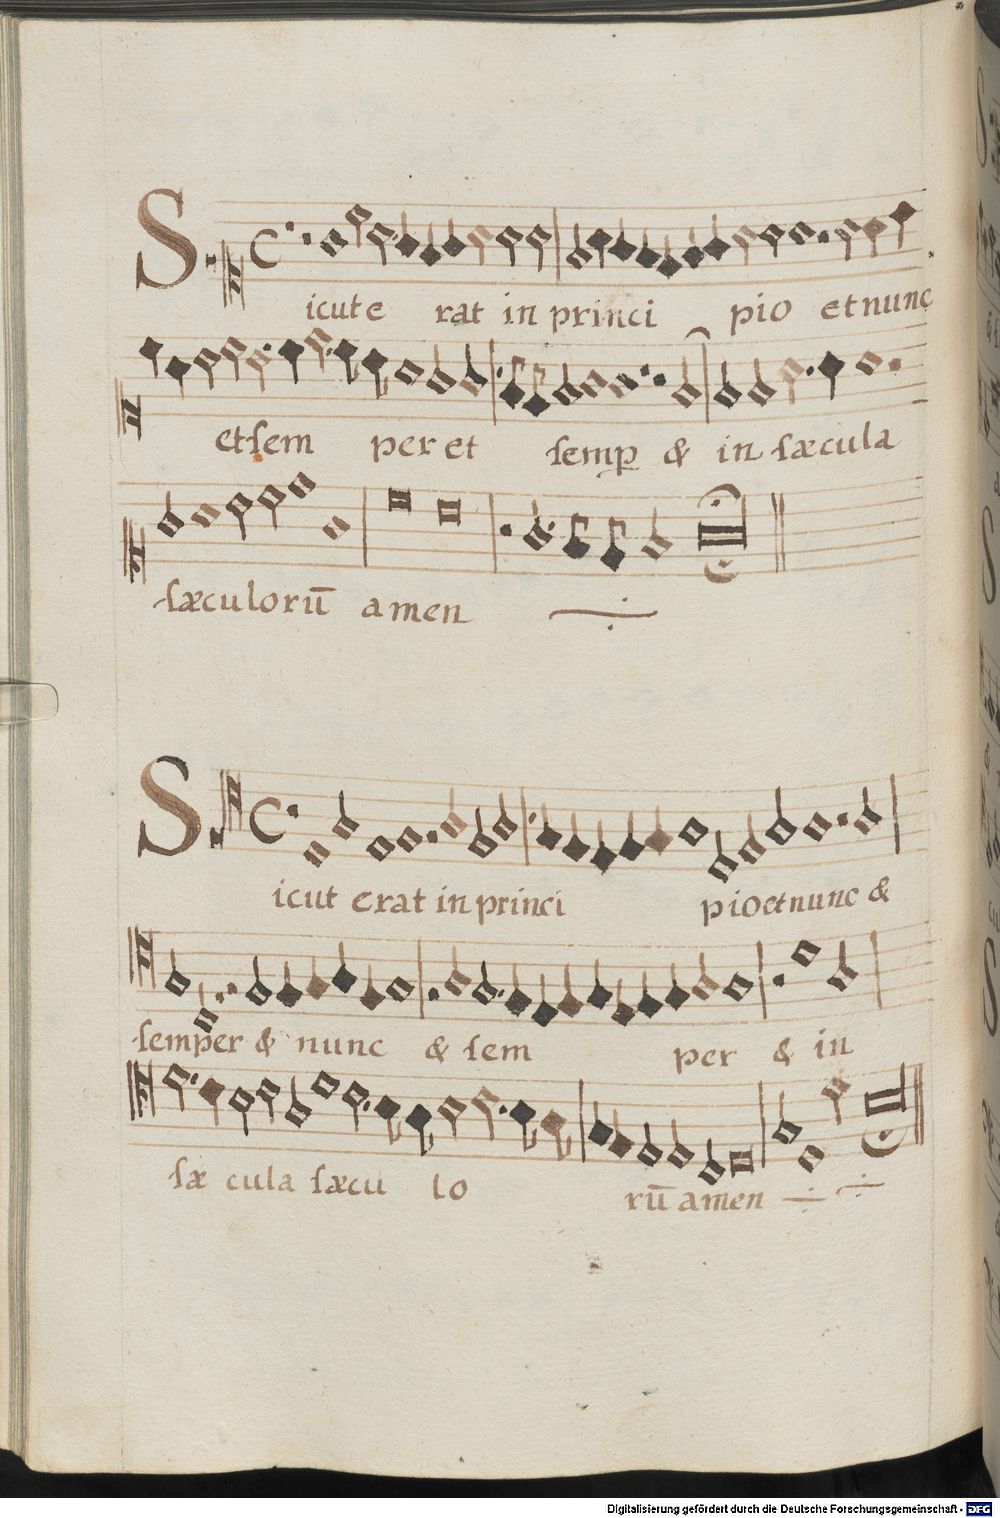 Sicut erat in princi pio et nunc
et sem per et semp & in sæcula
sæculorū amen
Sicut erat in princi pio et nunc &
semper & nunc & sem per & in
sæ cula sæcu lo rū amen
Digitalisierung gefördert durch die Deutsche Forschungsgemeinschaft - DFG